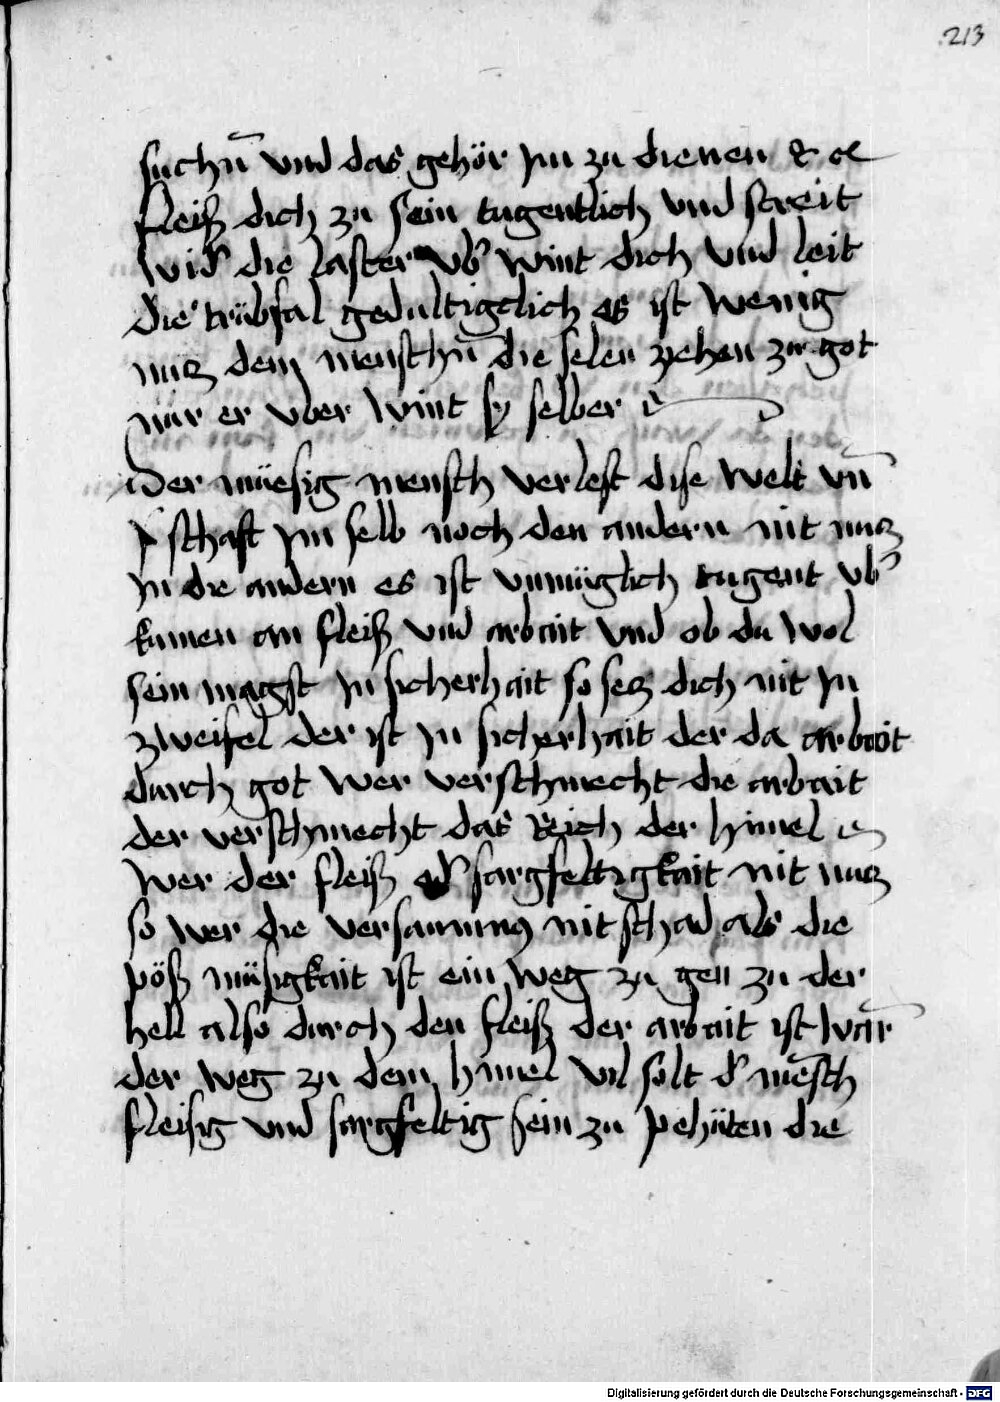 213
suchn̄ vnd das gehör jm zu dienen &
fleiß dich zu sein tugentlich vnd streit
wid' die laster vb' wint dich vnd leit
die trübsal gedultigclich es ist wenig
nucz dem menschn̄ die selen zyehen zu got
nur er vber wint sy selber
Der müesig mensch verlest dise welt vn̄
schaft jm selb noch den andern nit nucz
jn die andern es ist vnmüglich tugent vb'
kumen an fleiß vnd arbait vnd ob du wol
sein magst jn sicherhait so secz dich nit jn
zweifel der ist jn sicherhait der da arbait
durch got wer verschmecht die arbait
der verschmecht das Reich der himel
Wer der fleiß od' sargfeltigkait nit nucz
so wer die versamung nit schad als die
pöß müsigkait ist ein weg zu gen zu der
hell also durch den fleiß der arbait ist war̄
der weg zu dem himel vil solt d' mēsch
fleisig vnd sargfeltig sein zu pehüten die
Digitalisierung gefördert durch die Deutsche Forschungsgemeinschaft - DFG